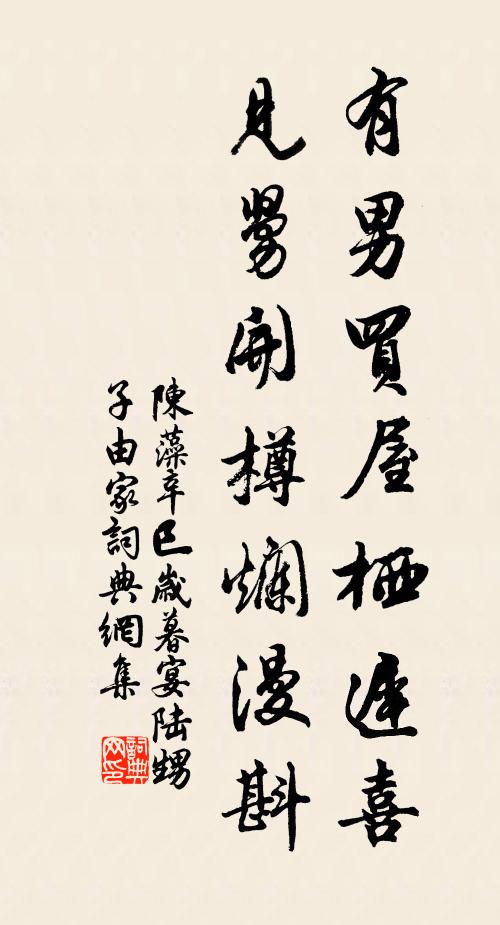 有男買屋栖遲喜
見舅開樽爛漫斟
陳藻辛巳歲暮宴陸甥
子由家詞典網集
詞典
网印